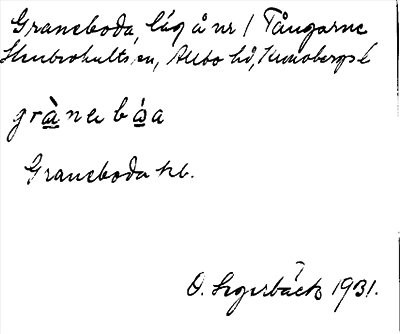 Graneboda, låg å nr 1 Tångarne
Skatelövs sn, Allbo hd, Kronobergs l.
grànebóa
Graneboda kb.
O. Segerbäck 1931.